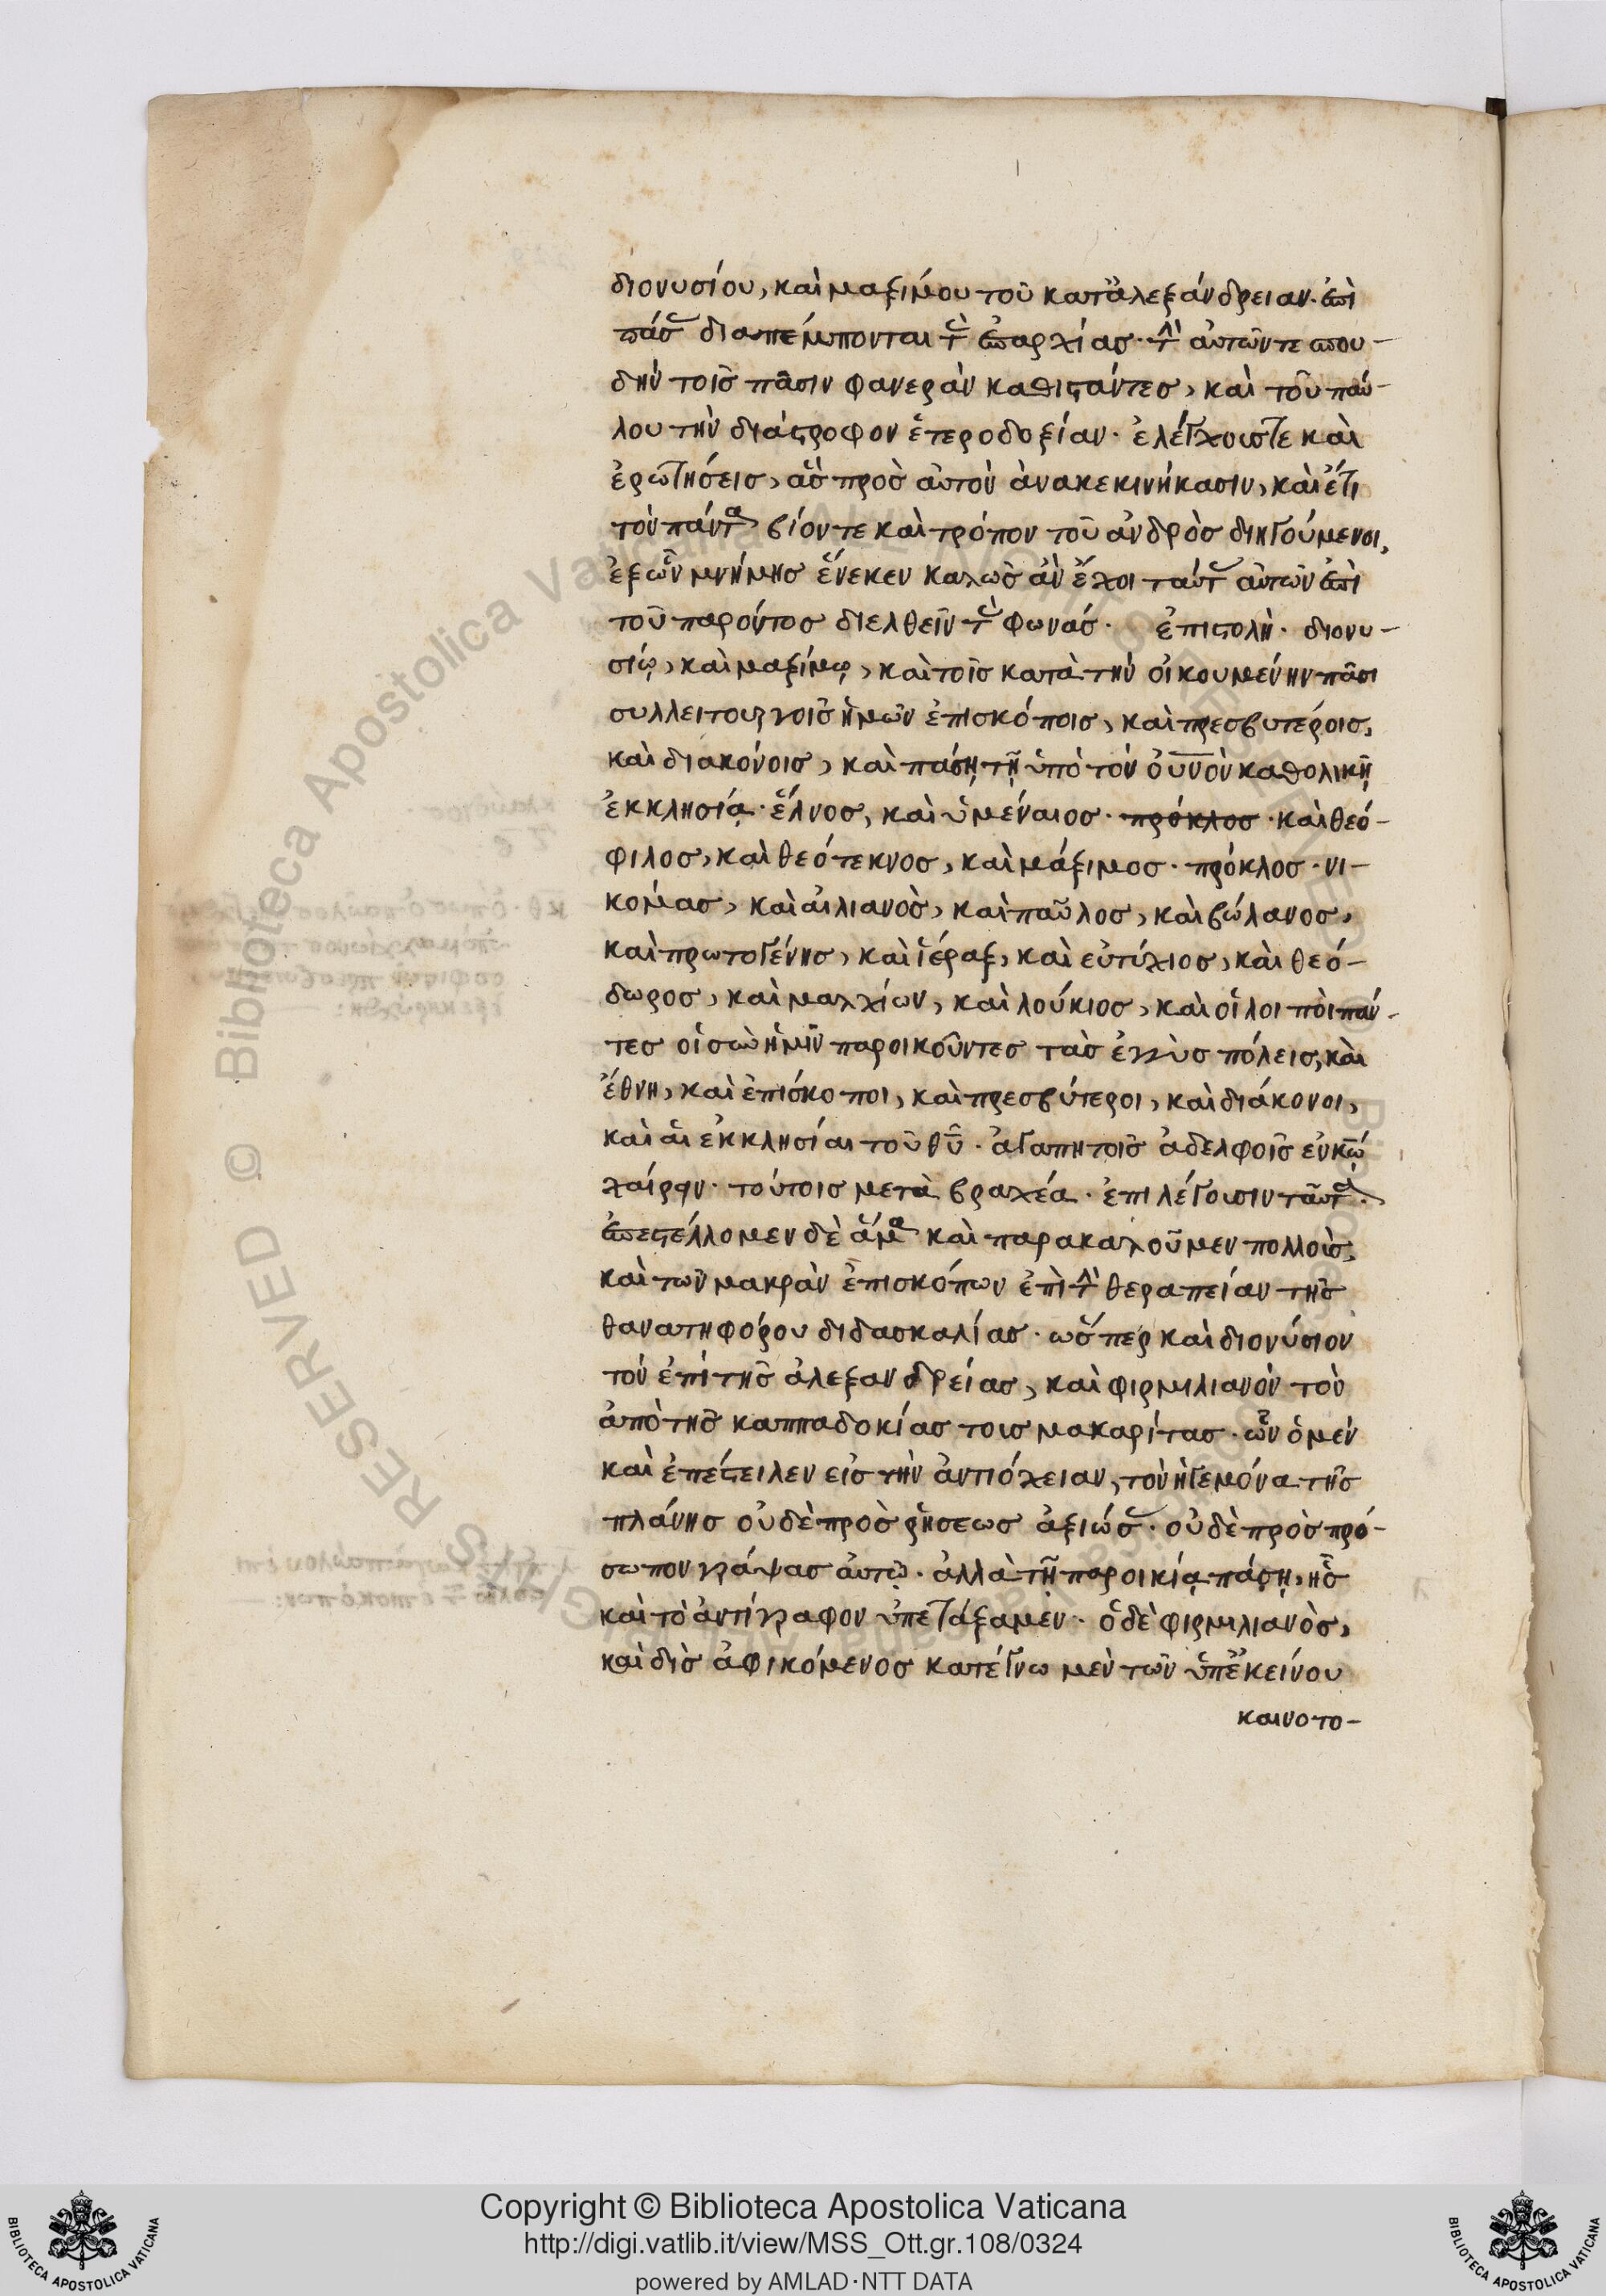 διονυσίου, καὶ μαξίμου τοῦ κατ' ἀλεξάνδρειαν. ἐπὶ
πάσ διαπέμπονται τ ἐπαρχίασ. τ αὐτῶν τε σπου-
δὴν τοῖσ πᾶσιν φανερὰν καθιστάντεσ, καὶ τοῦ παύ-
λου τὴν διάστροφον ἑτεροδοξίαν. ἐλέγχουστε καὶ
ἐρωτήσεισ, ἃσ πρὸσ αὐτὸν ἀνακεκινήκασιν, καὶ ἔτι
τὸν πάντα βίον τε καὶ τρόπον τοῦ ἀνδρὸσ διηγούμενοι,
ἐξ ὧν μνήμησ ἕνεκεν καλῶσ ἂν ἔχοι ταύτ αὐτῶν ἐπὶ
τοῦ παρόντοσ διελθεῖν τ φωνάσ. ἐπιστολή. διονυ-
σίῳ, καὶ μαξίμῳ, καὶ τοῖσ κατὰ τὴν οἰκουμένην πᾶσι
συλλειτουργοῖσ ἡμῶν ἐπισκόποισ, καὶ πρεσβυτέροισ,
καὶ διακόνοισ, καὶ πάσῃ τῇ ὑπὸ τὸν οὐνὸν καθολικῇ
ἐκκλησίᾳ. ἕλνοσ, καὶ ὑμέναιοσ. πρόκλοσ. καὶ θεό-
φιλοσ, καὶ θεότεκνοσ, καὶ μάξιμοσ. πρόκλοσ. νι-
κομασ, καὶ αἰλιανὸσ, καὶ παῦλοσ, καὶ βώλανοσ,
καὶ πρωτογένησ, καὶ ἱέραξ, καὶ εὐτύχιοσ, καὶ θεό-
δωροσ, καὶ μαλχίων, καὶ λούκιοσ, καὶ οἱ λοιποὶ πάν-
τεσ οἱ σὺν ἡμῖν παροικοῦντεσ τὰσ ἐγγὺσ πόλεισ, καὶ
ἔθνη, καὶ ἐπίσκοποι, καὶ πρεσβύτεροι, καὶ διάκονοι,
καὶ αἱ ἐκκλησίαι τοῦ θῦ. ἀγαπητοῖσ ἀδελφοῖσ ἐν κῶ
χαίρειν. τούτοισ μετὰ βραχέα. ἐπιλέγουσιν ταῦτα.
ἐπεστέλλομεν δὲ ἅμα καὶ παρακαλοῦμεν πολλοὺσ,
καὶ τῶν μακρὰν ἐπισκόπων ἐπὶ τ θεραπείαν τῆσ
θανατηφόρου διδασκαλίασ. ὥσπερ καὶ διονύσιον
τὸν ἐπὶ τῆσ ἀλεξανδρείασ, καὶ φιρμιλιανὸν τὸν
ἀπὸ τῆσ καππαδοκίασ τουσ μακαρίτασ. ὧν ὁ μὲν
καὶ ἐπέστειλεν εἰσ τὴν ἀντιόχειαν, τὸν ἡγεμόνα τῆσ
πλάνησ οὐδὲ προσ ρήσεωσ ἀξιώσ. οὐδὲ πρὸσ πρό-
σωπον γράψασ αὐτῷ. ἀλλὰ τῇ παροικίᾳ πάσῃ, ἧσ
καὶ τὸ ἀντίγραφον ὑπετάξαμεν. ὁ δὲ φιρμιλιανὸσ,
καὶ δὶσ ἀφικόμενοσ κατέγνω μὲν τῶν ὑπ' ἐκείνου
καινοτο-
Copyright © Biblioteca Apostolica Vaticana
http://digi.vatlib.it/view/MSS_Ott.gr.108/0324
powered by AMLAD·NTT DATA